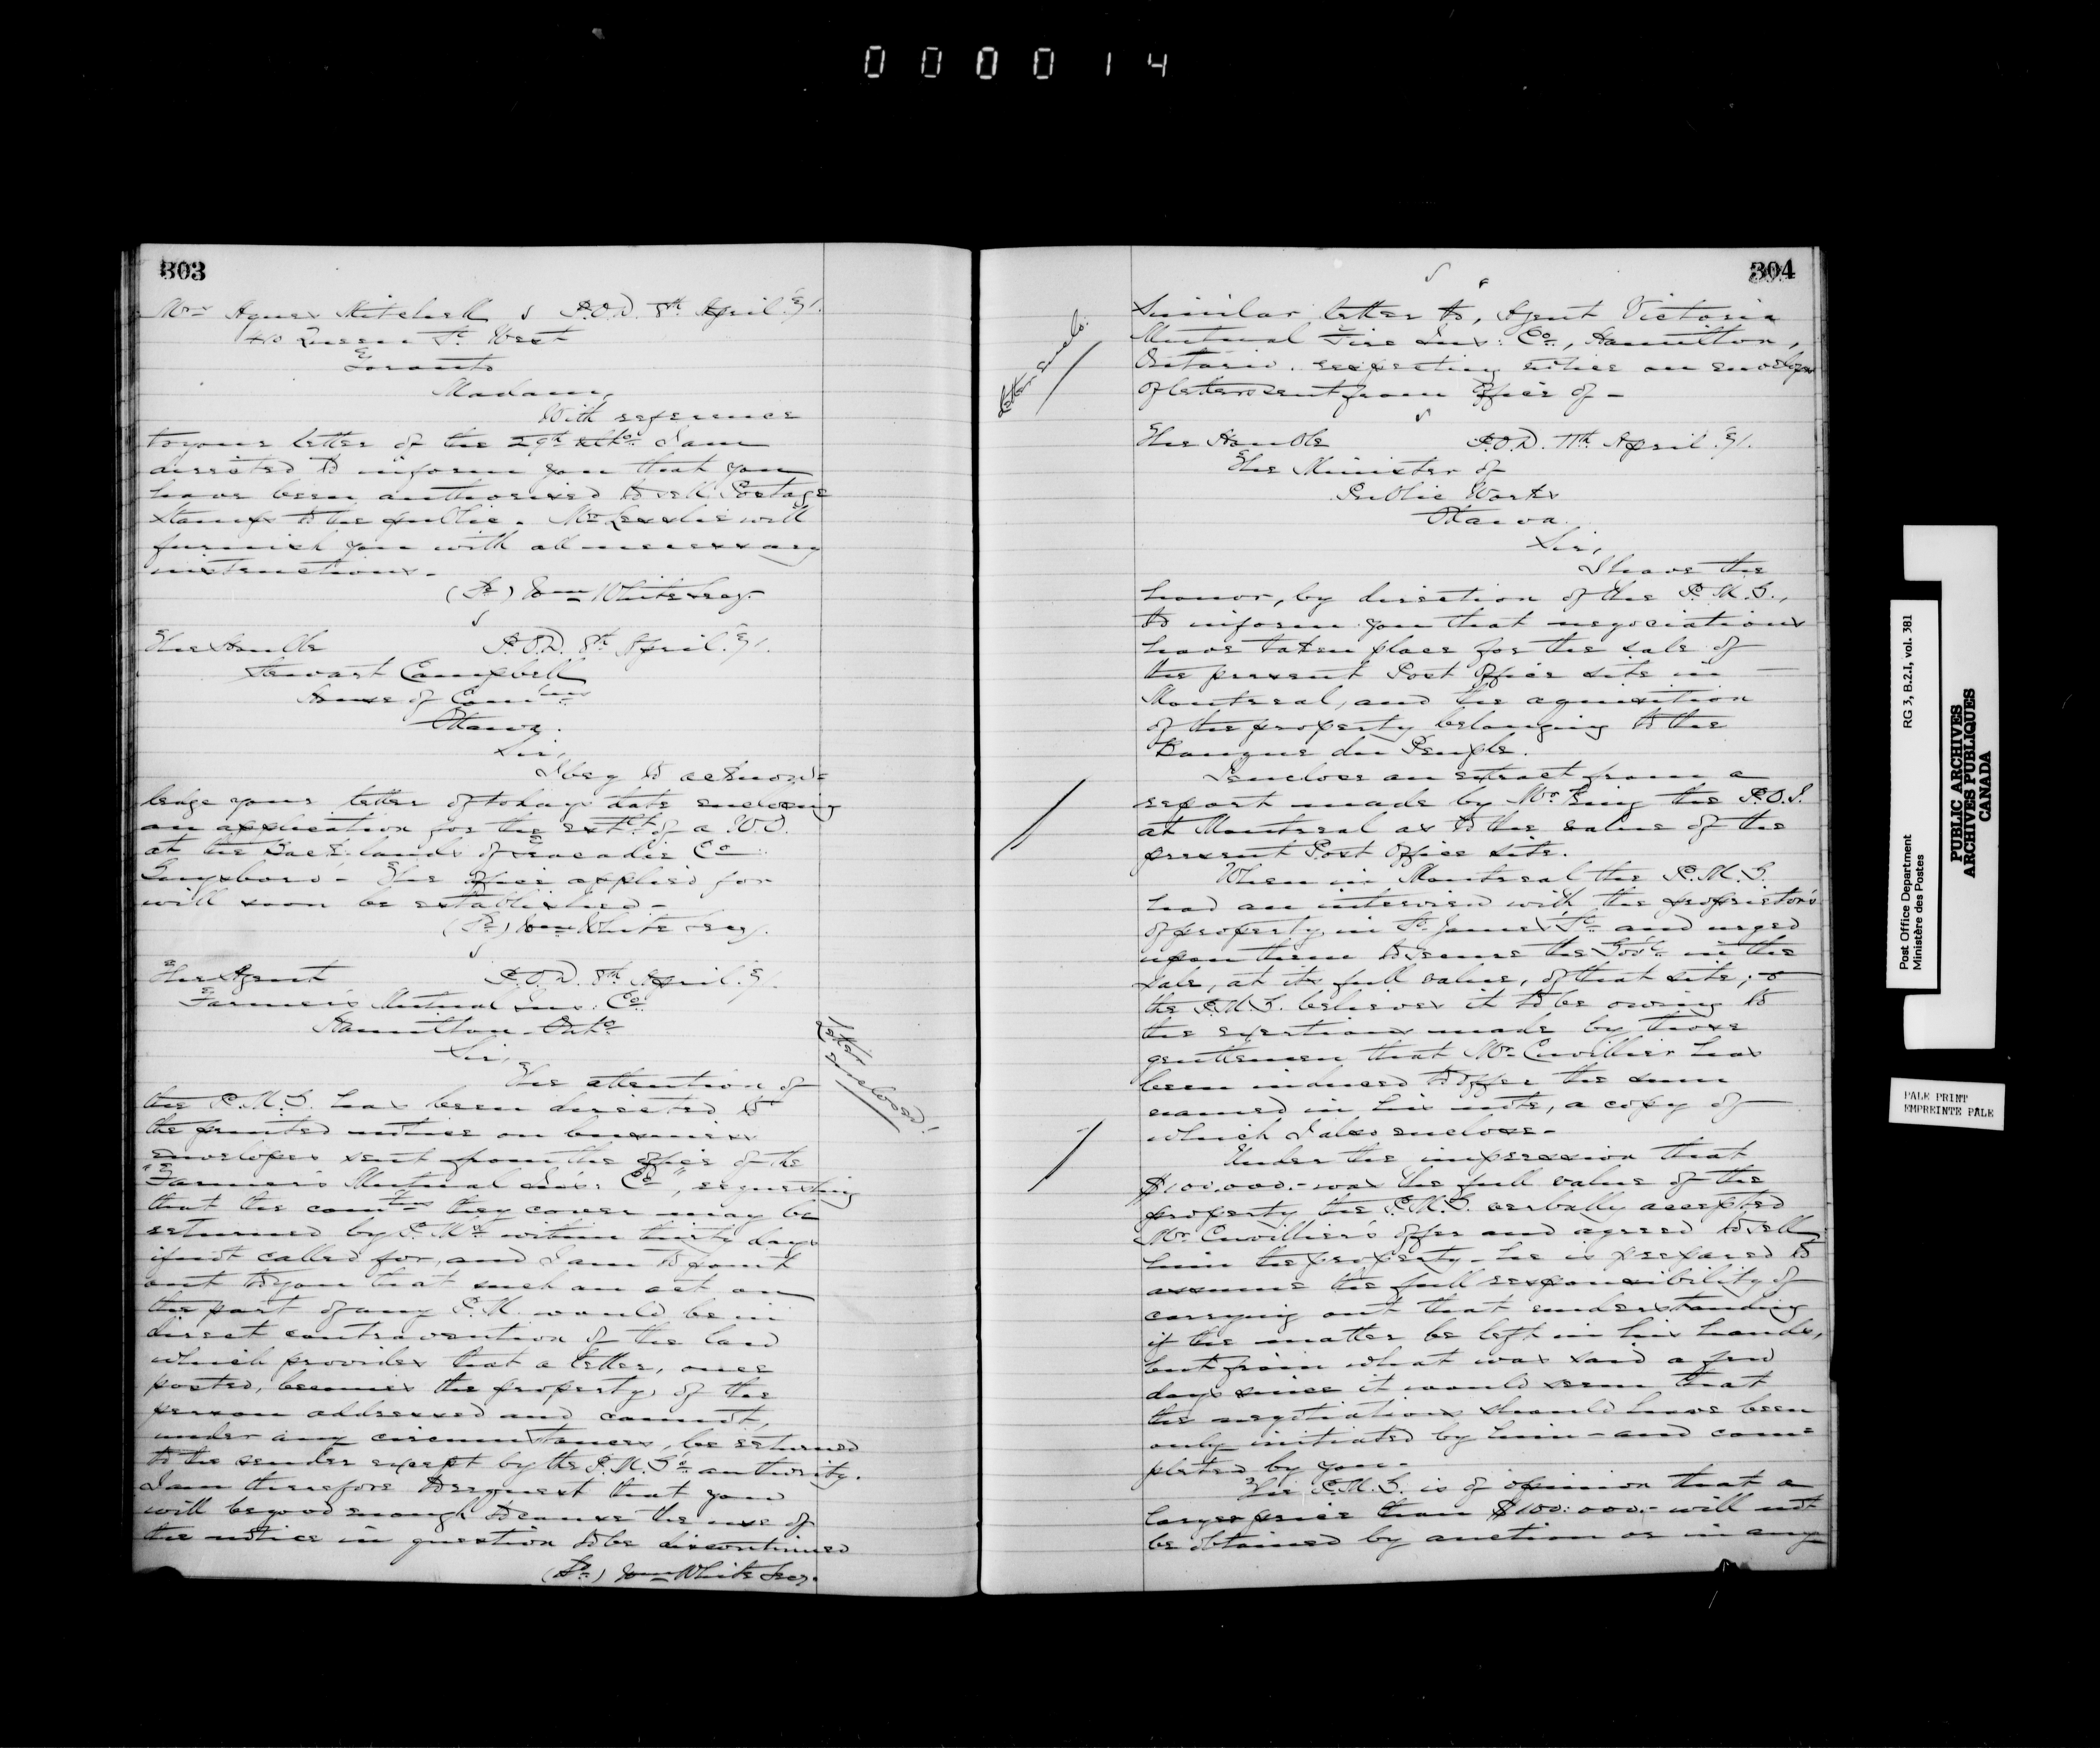 000014
303
Mrs Agnes Mitchell P.O.D. 8th April '71.
410 Queen St. West
Toronto
Madam,
With reference
to your letter of the 29th ulto. I am
directed to inform you that you
have been authorised to sell Postage
stamps to the public. Mr Lesslie will
furnish you with all necessary
instructions.-
(Sd) Wm White Secy.
The Honble P.O.D. 8th April '71.
Stewart Campbell
House of Comms
Ottawa.
Sir,
I beg to acknow=
ledge your letter of today's date enclosing
an application for the estt. of a W.O.
at the back lands of Tracadie Co.
Guysboro - The office applied for
will soon be established -
(Sd) Wm White Secy.
The Agent P.O.D. 8th April '71.
Farmer's Mutual Ins: Co.
Hamilton Onto
Sir,
The attention of
the P.M.G. has been directed to
the printed notice on business
envelopes sent from the office of the
"Farmer's Mutual Ins: Co", requesting
that the comtns they cover may be
returned by P.Mrs within thirty days
if not called for, and I am to point
out to you that such an act on
the part of any P.M. would be in
direct contravention of the law
which provides that a letter, once
posted, becomes the property, of the
person addressed and cannot,
under any circumstances, be returned
to the sender except by the P.M.G's authority.
I am therefore to request that you
will be good enough to cause the use of
the notice in question to be discontinued
(Sd) Wm White Secy.
Letter enclosed.
304
Similar letter to, Agent Victoria
Mutual Fire Ins: Co., Hamilton,
Ontario. respecting notice on envelopes
of letters sent from office of -
Letter Encld.
The Honble P.O.D. 11th April '71.
The Minister of
Public Works
Ottawa.
Sir,
I have the
honor, by direction of the P.M.G.,
to inform you that negociations
have taken place for the sale of
the present Post Office site in
Montreal, and the aquisition
of the property belonging to the
Banque du Peuple.
I enclose an extract from a
report made by Mr King the P.O.I.
at Montreal as to the value of the
present Post Office site.
When in Montreal the P.M.G.
had an interview with the proprietors
of property in St James' St. and urged
upon them to secure the Govt. in the
sale, at its full value, of that site; &
the P.M.G. believes it to be owing to
the exertions made by those
gentlemen that Mr Cuvillier has
been induced to offer the sum
named in his note, a copy of
which I also enclose -
Under the impression that
$100,000.- was the full value of the
property the P.M.G. verbally accepted
Mr Cuvillier's offer and agreed to sell
him the property - he is prepared to
assume the full responsibility of
carrying out that understanding
if the matter be left in his hands,
but from what was said a few
days since it would seem that
the negotiations should have been
only initiated by him - and com=
pleted by you -
The P.M.G. is of opinion that a
larger price than $100:000.- will not
be obtained by auction or in any
Post Office Department RG 3, B.2.1, vol. 381
Ministère des Postes
PUBLIC ARCHIVES
ARCHIVES PUBLIQUES
CANADA
PALE PRINT
EMPREINTE PALE